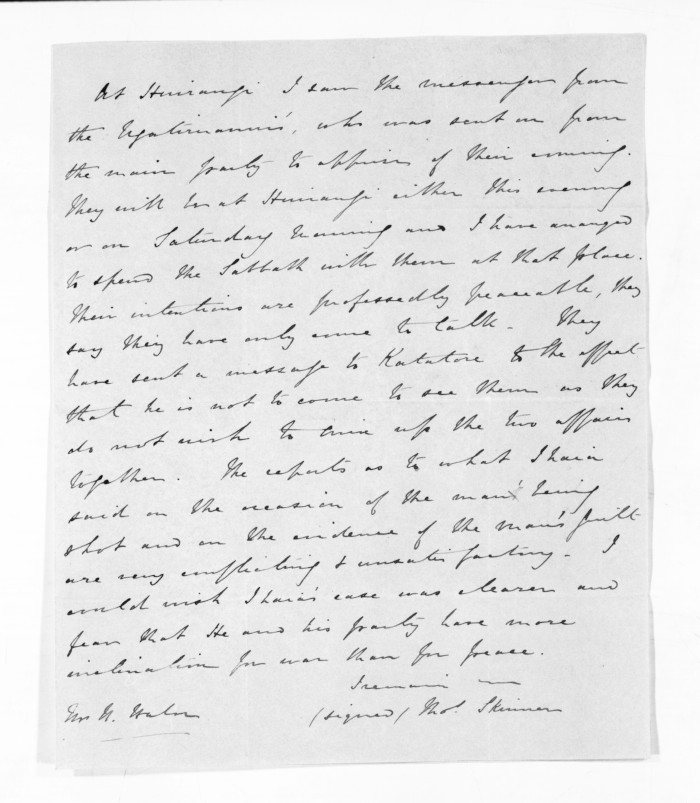 At Huirangi I saw the messenger from
the Ngatimaniu's, who was sent on from
the main party to apprise of their coming.
They will be at Huirangi either this evening
or on Saturday morning and I have arranged
to spend the Sabbath with them at that place.
Their intentions are professedly peaceable, they
say they have only come to talk - They
have sent a message to Katatore to the effect
that he is not to come to see them as they
do not wish to mix up the two affairs
together. The reports as to what Ihaia
said on the occasion of the man's being
shot and on the evidence of the man's guilt
are very conflicting & unsatisfactory - I
could wish Ihaia's case was clearer and
fear that He and his party have more
inclination for war than for peace.
I remain
(signed) Thos. Skinner
H. Halse